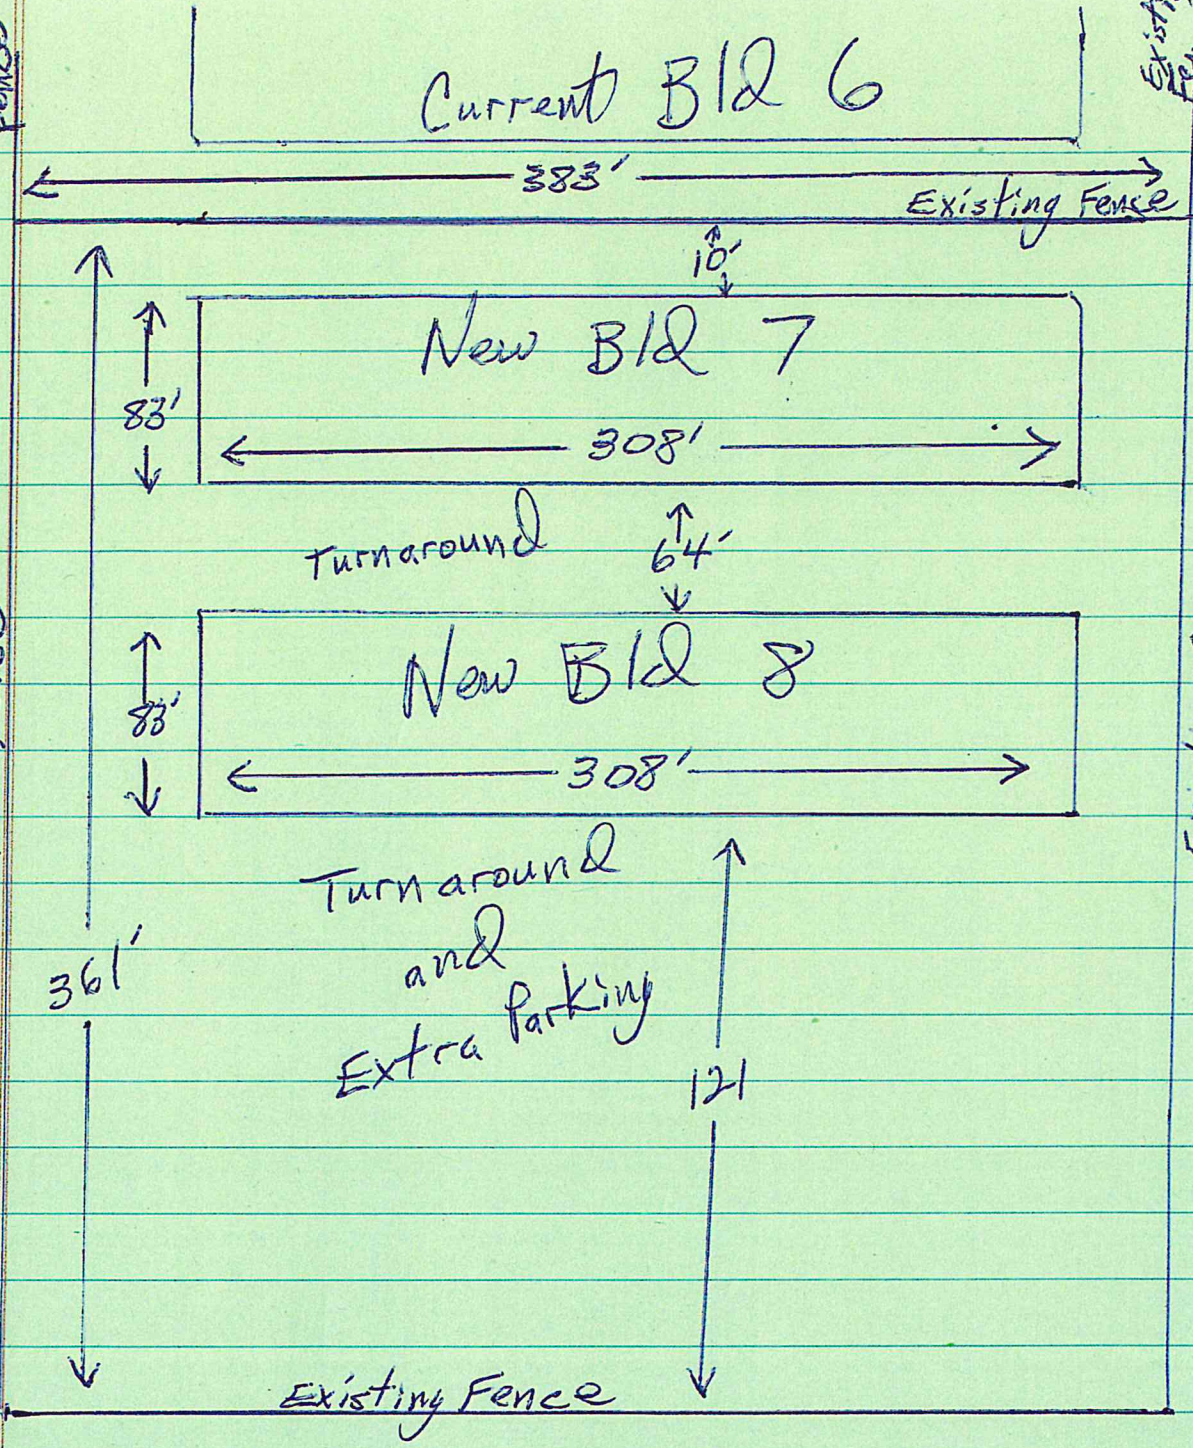 Current Bld 6
383'
Existing Fence
10'
New Bld 7
83'
308'
Turnaround
64'
New Bld 8
83'
308'
Turnaround
and
Extra Parking
361'
121
Existing Fence